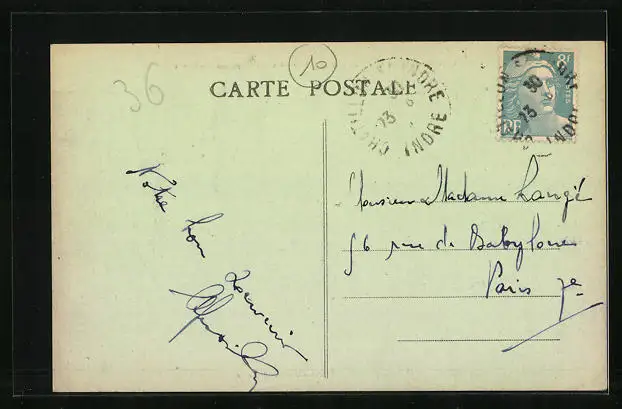 36
10
CARTE POSTALE
CHATILLON S/INDRE
30
13
INDRE
8F
RF
Notre bon
souvenir
Monsieur & Madame Langé
56 rue de Babylone
Paris 7e